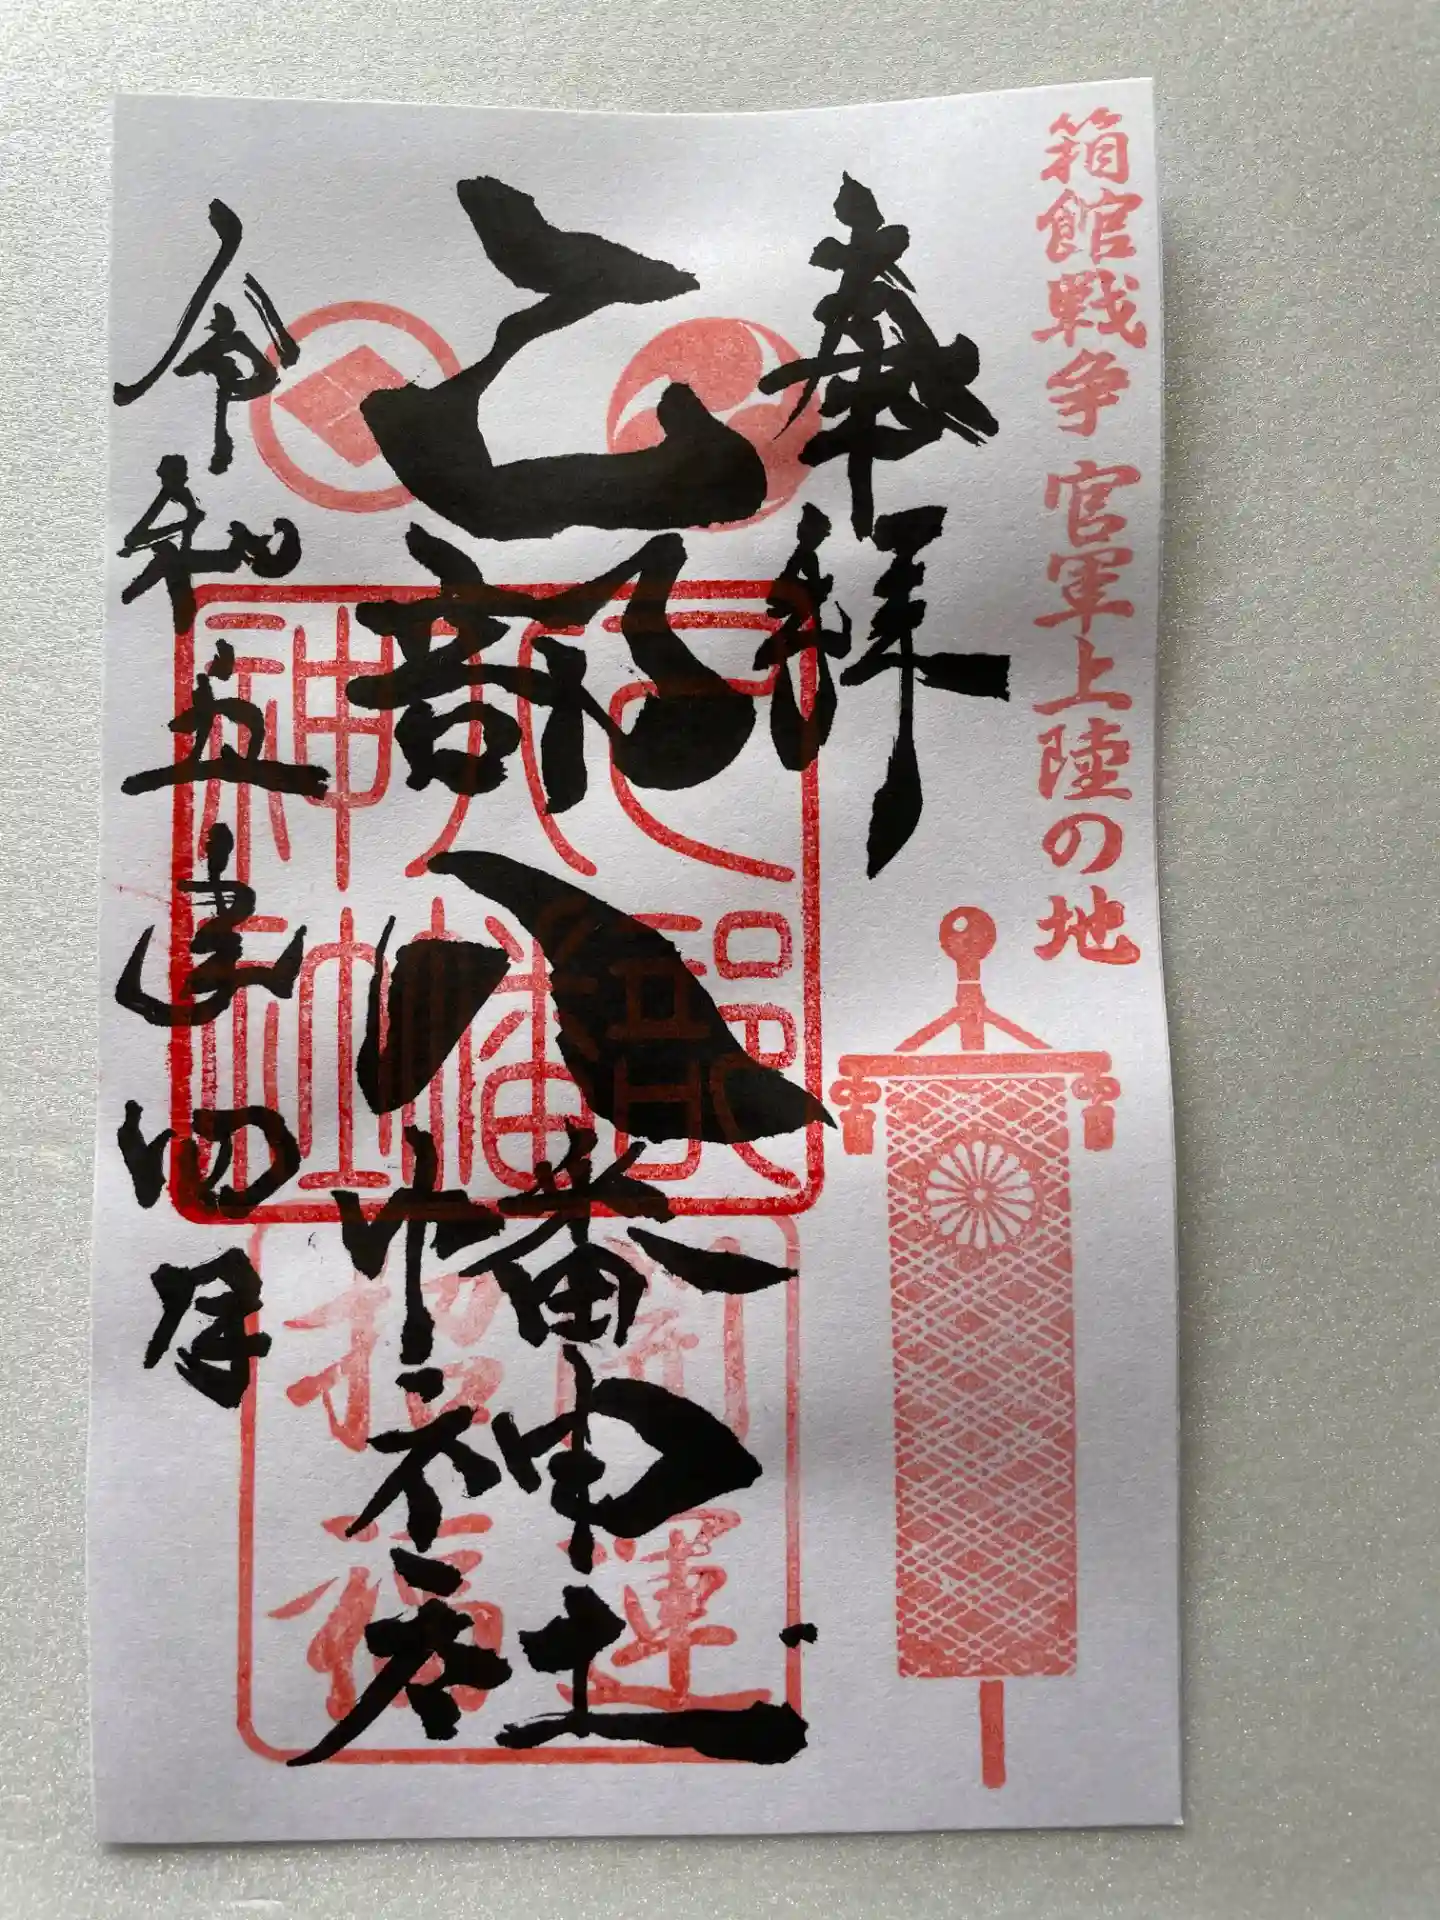 箱館戦争 官軍上陸の地
奉拝
乙部八幡神社
乙部
八幡
神社
開運
招福
令和五年四月